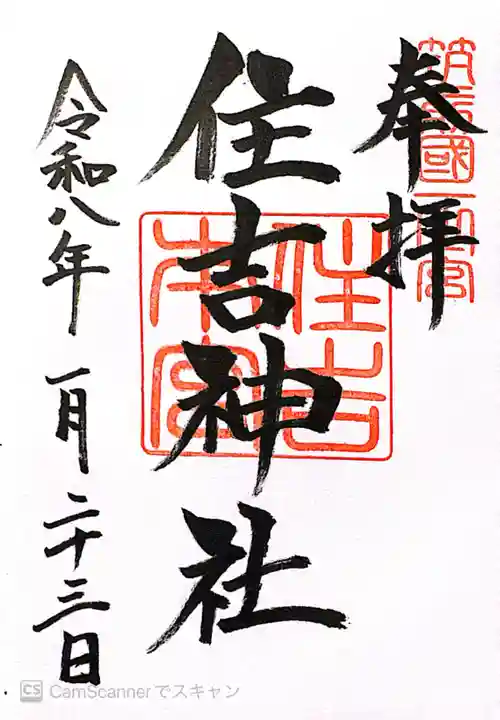 奉拝
筑前國一之宮
住吉神社
住吉本宮
令和八年一月二十三日
CS CamScannerでスキャン